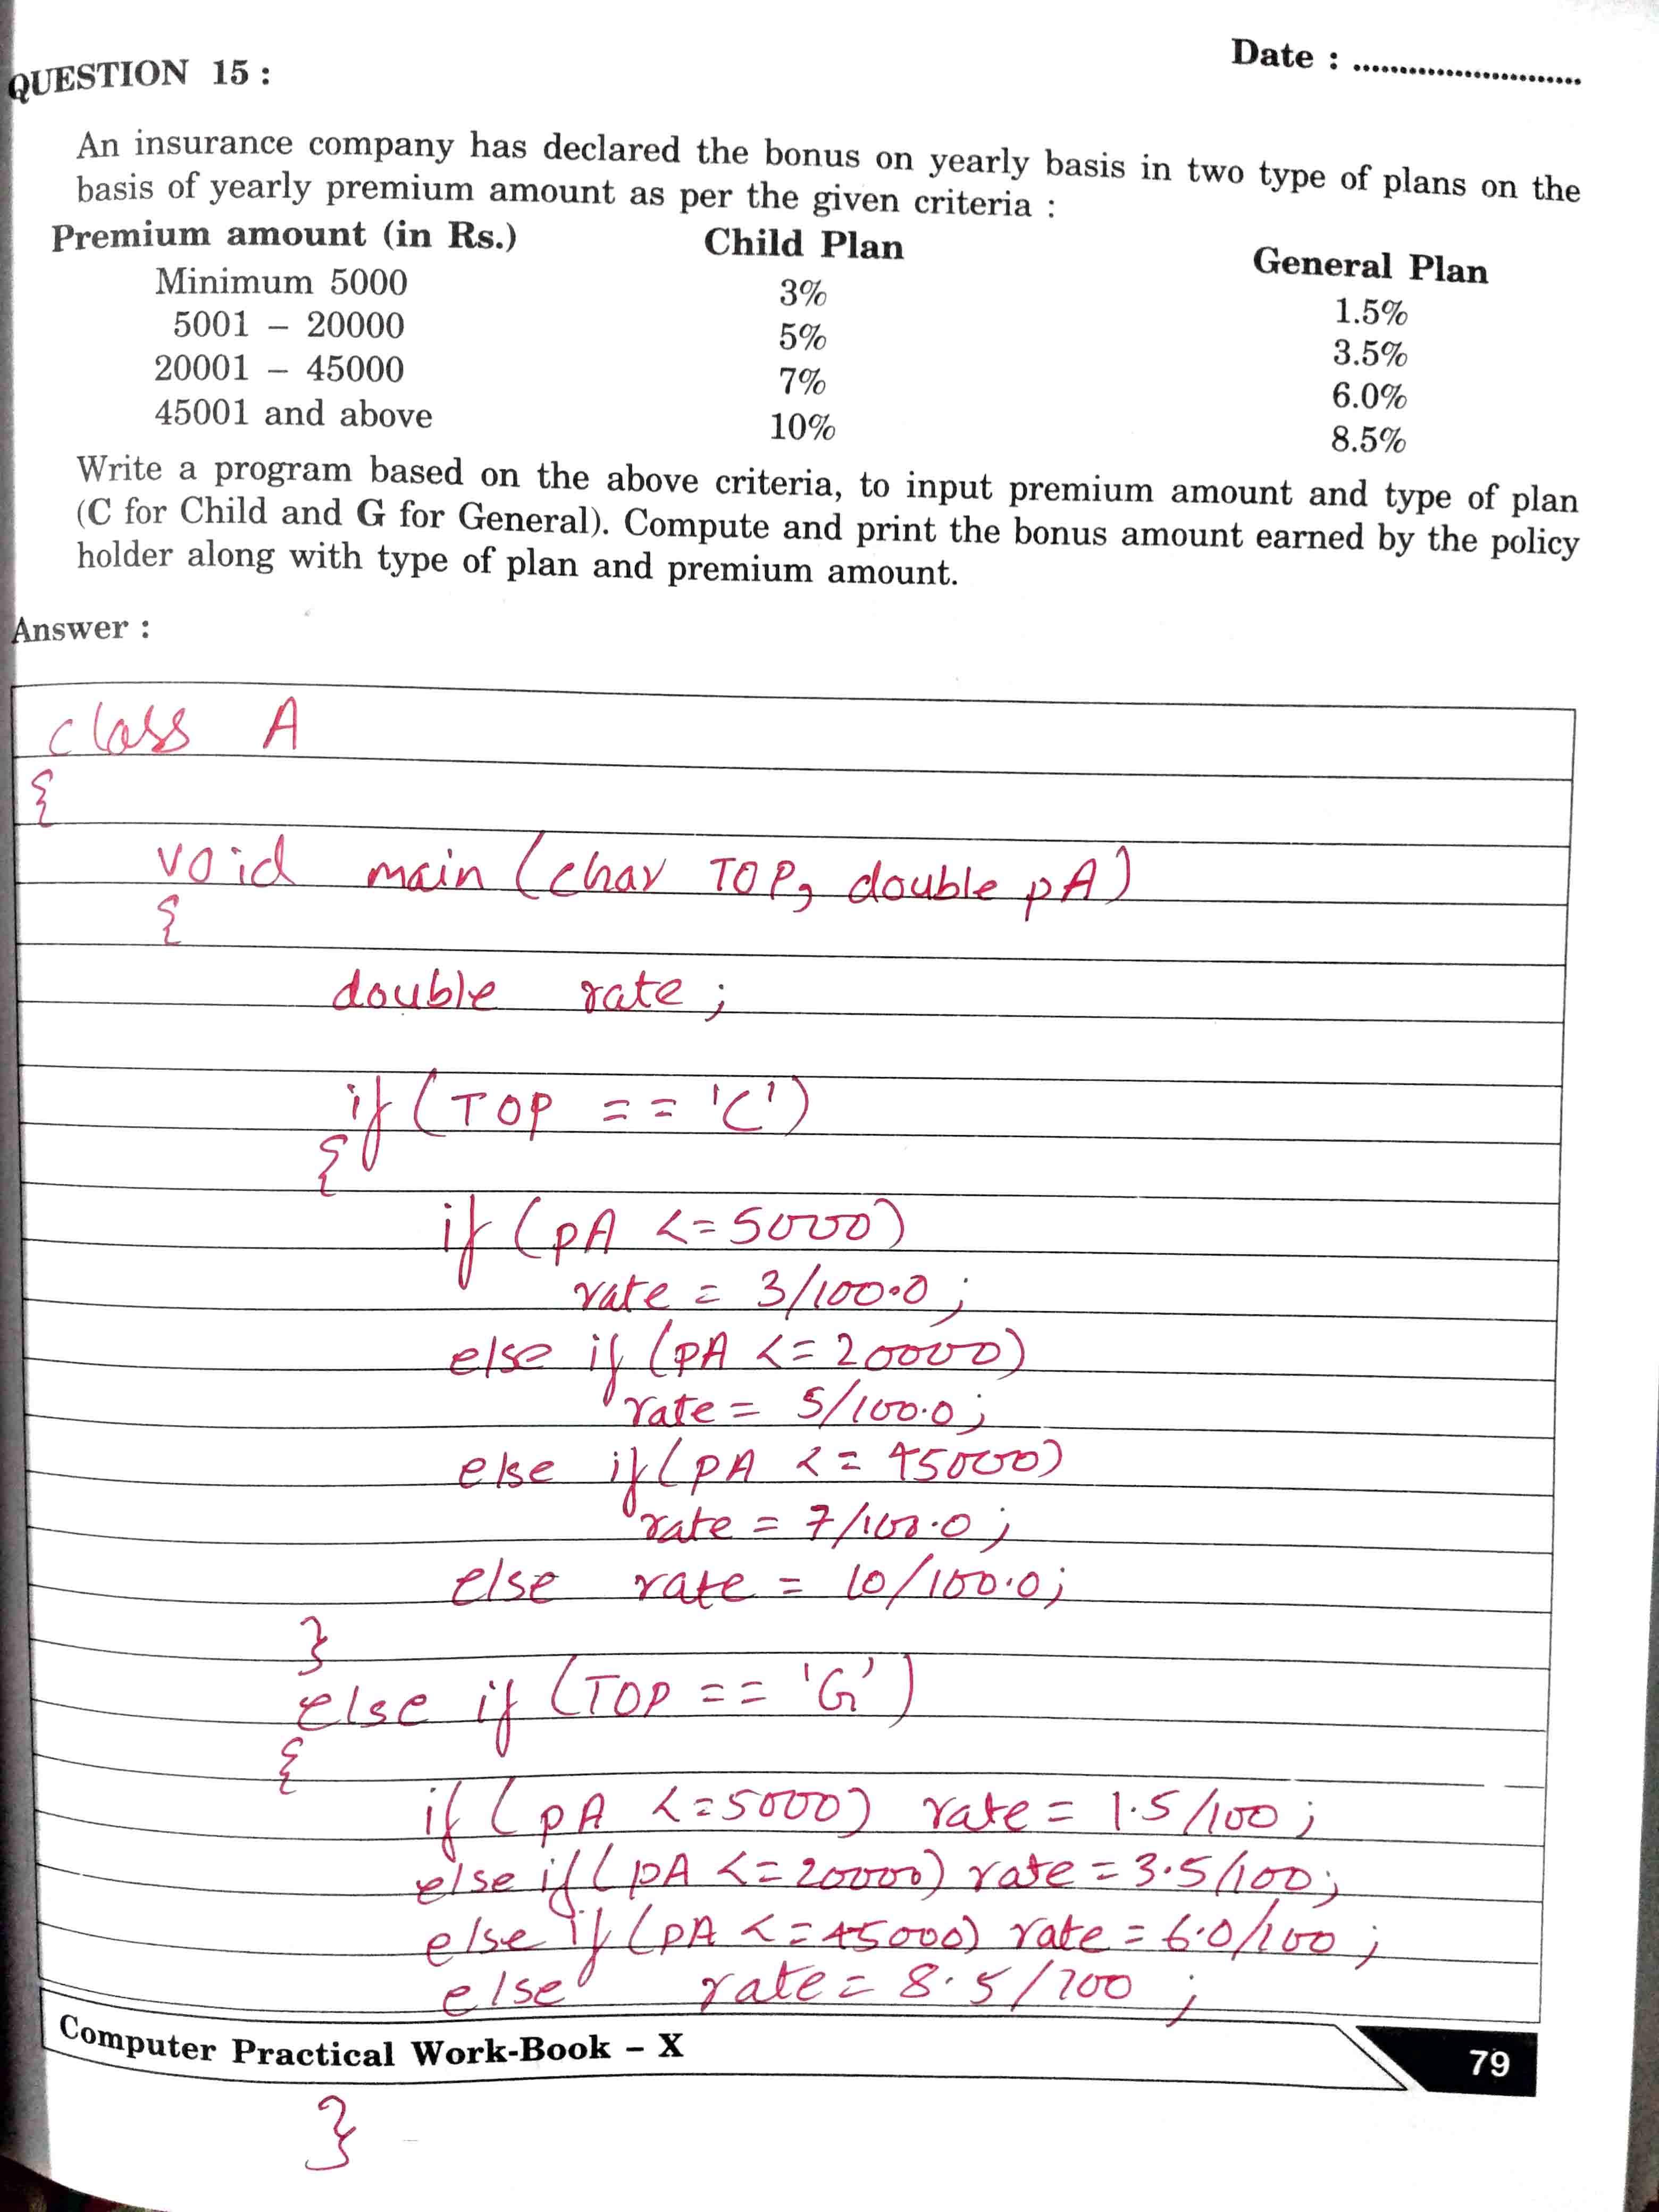 Date : ..........................
QUESTION 15 :
An insurance company has declared the bonus on yearly basis in two type of plans on the
basis of yearly premium amount as per the given criteria :
Premium amount (in Rs.) Child Plan General Plan
Minimum 5000 3% 1.5%
5001 – 20000 5% 3.5%
20001 – 45000 7% 6.0%
45001 and above 10% 8.5%
Write a program based on the above criteria, to input premium amount and type of plan
(C for Child and G for General). Compute and print the bonus amount earned by the policy
holder along with type of plan and premium amount.
Answer :
class A
{
void main (char TOP, double pA)
{
double rate ;
if (TOP == 'C')
{
if (pA <= 5000)
rate = 3/100.0 ;
else if (pA <= 20000)
rate = 5/100.0 ;
else if (pA <= 45000)
rate = 7/100.0 ;
else rate = 10/100.0 ;
}
else if (TOP == 'G')
{
if (pA <= 5000) rate = 1.5/100 ;
else if (pA <= 20000) rate = 3.5/100 ;
else if (pA <= 45000) rate = 6.0/100 ;
else rate = 8.5/100 ;
Computer Practical Work-Book – X 79
}